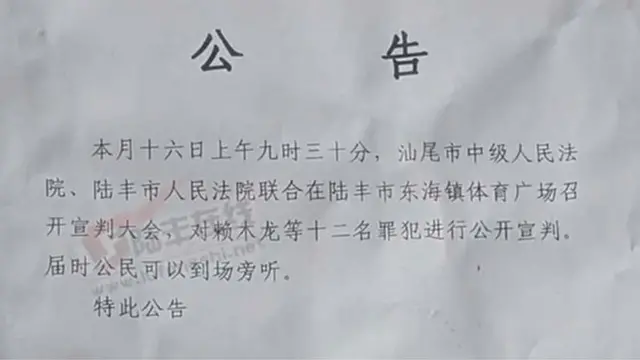 公告
本月十六日上午九时三十分，汕尾市中级人民法
院、陆丰市人民法院联合在陆丰市东海镇体育广场召
开宣判大会，对赖木龙等十二名罪犯进行公开宣判。
届时公民可以到场旁听。
特此公告